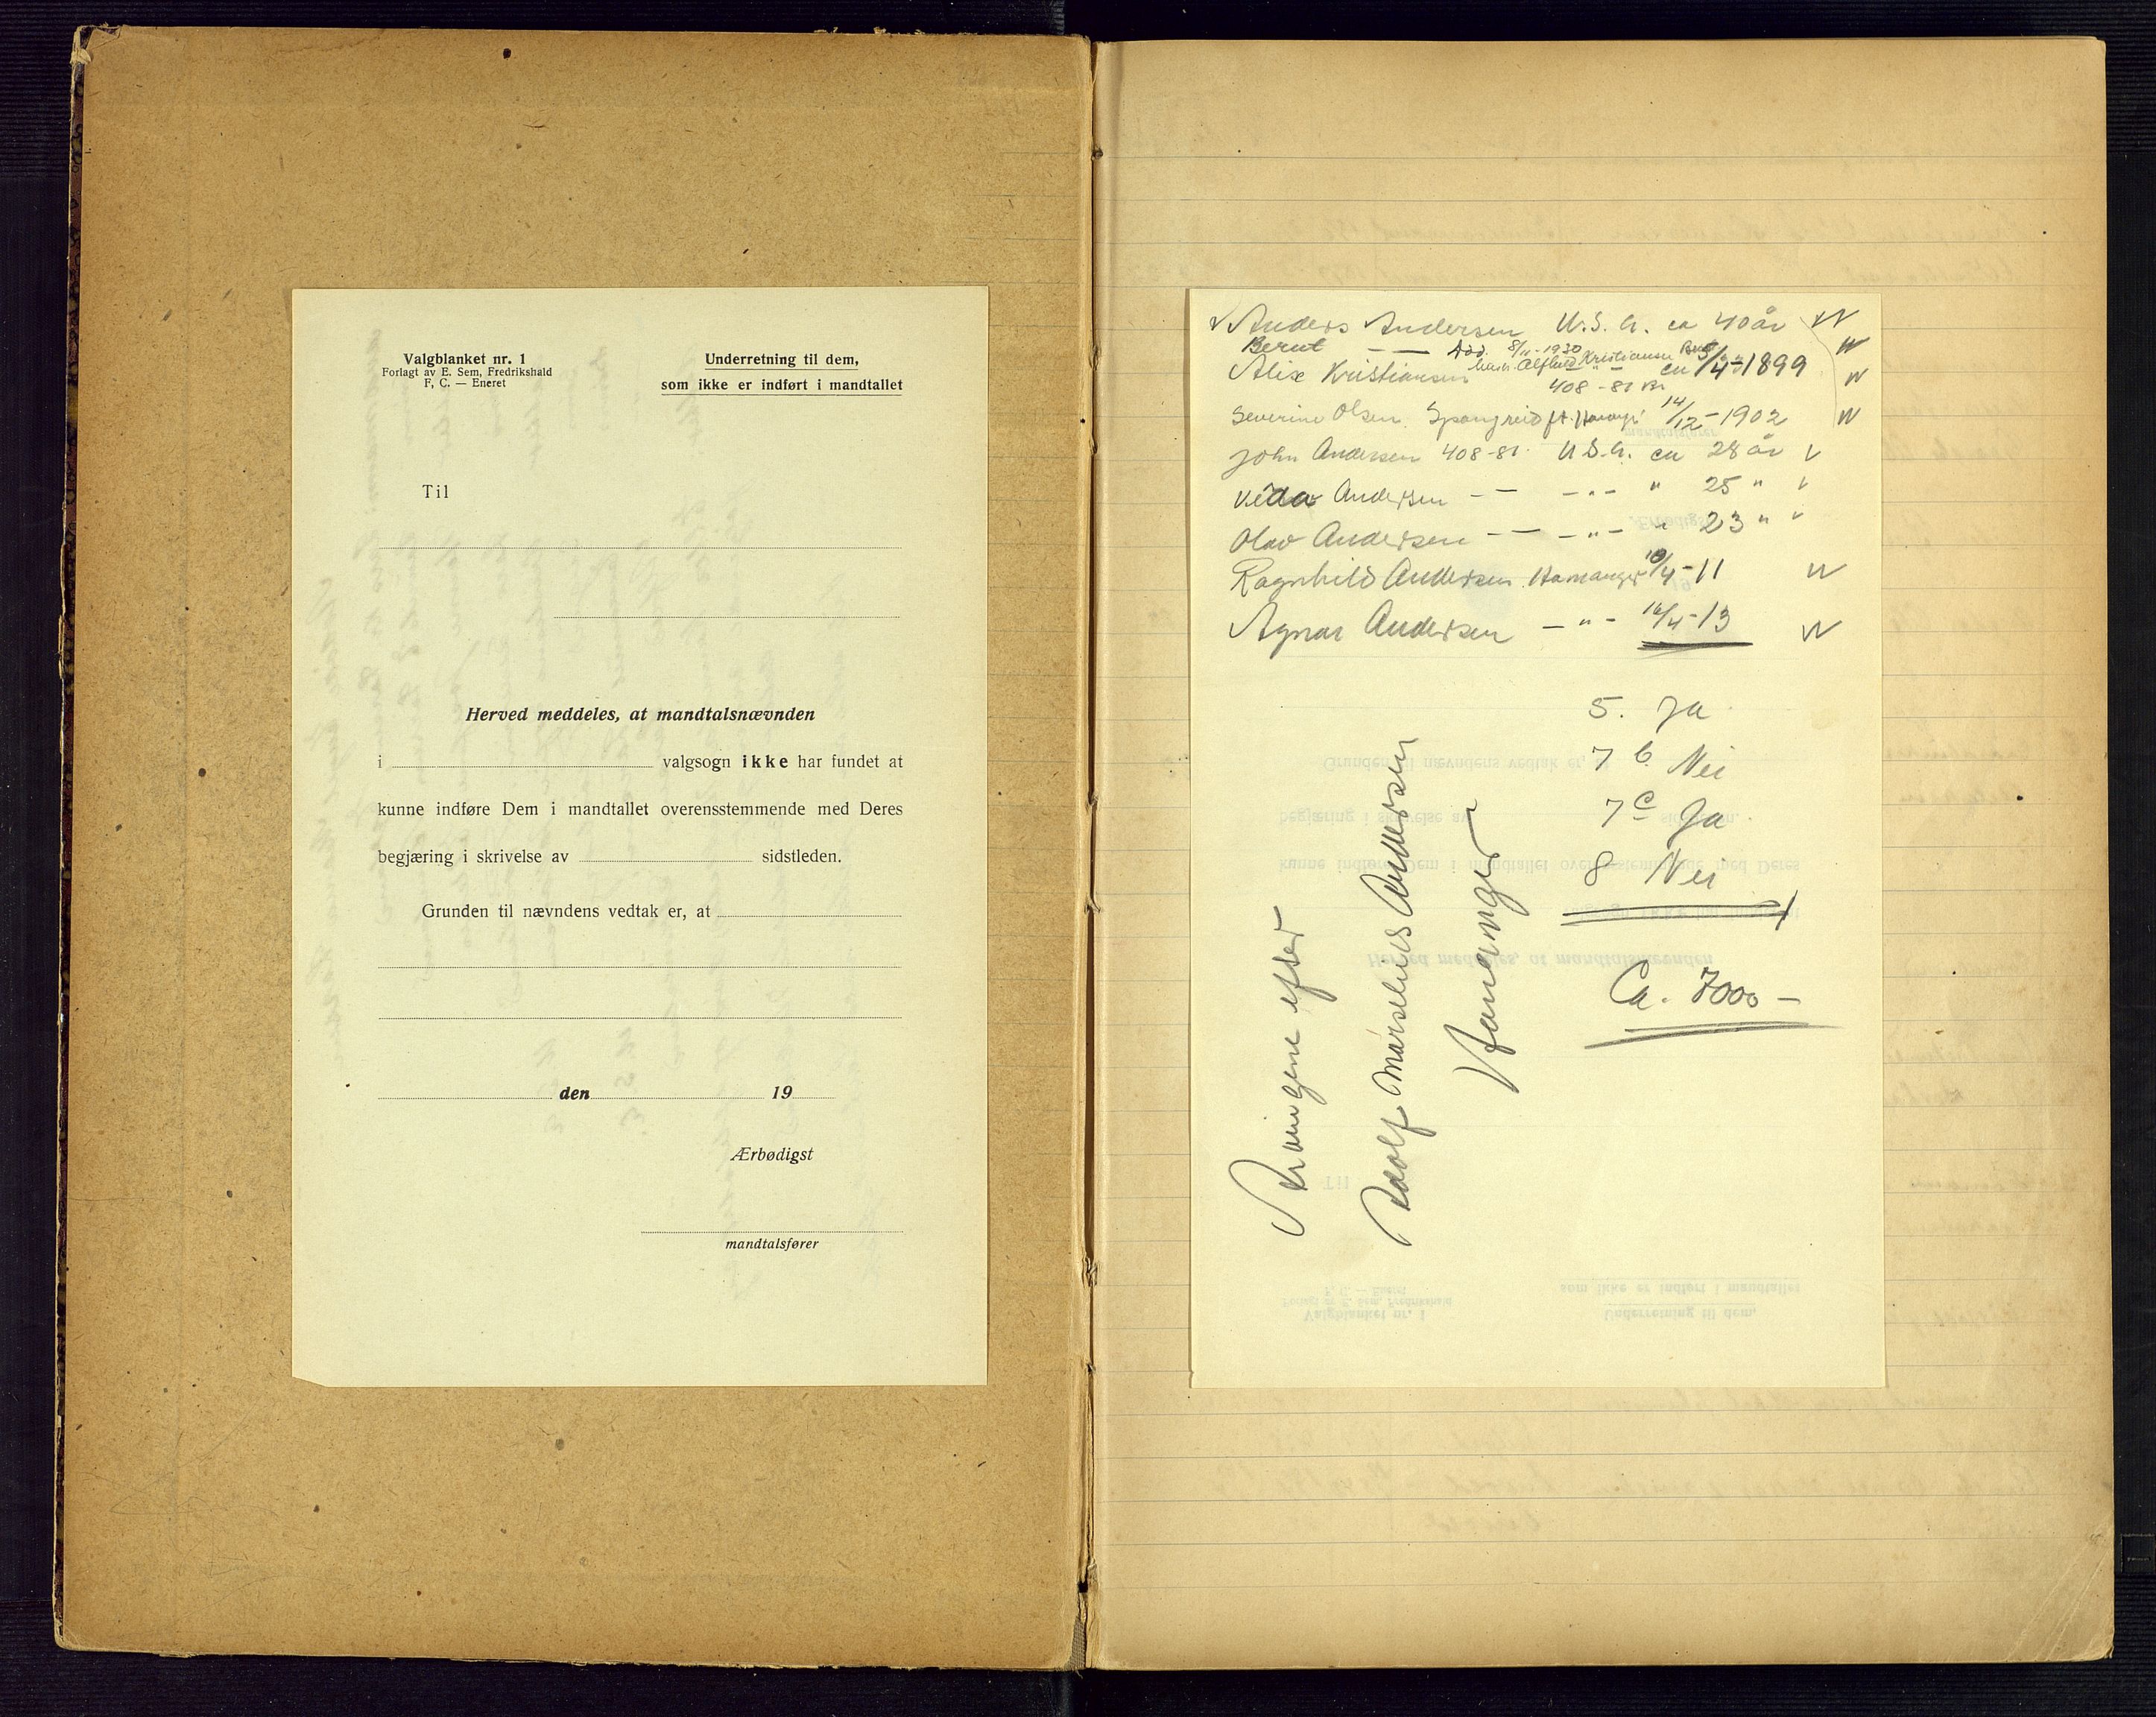 Valgblanket nr. 1
Forlagt av E. Sem, Fredrikshald
F, C. — Eneret
Underretning til dem,
som ikke er indført i mandtallet
Til
Herved meddeles, at mandtalsnævnden
i valgsogn ikke har fundet at
kunne indføre Dem i mandtallet overensstemmende med Deres
begjæring i skrivelse av sidstleden.
Grunden til nævndens vedtak er, at
den 19
Ærbødigst
mandtalsfører
Anders Andersen U.S.A. ca 40 år
Berut — død 8/11-1930
Alex Kristiansen Alfhild Kristiansen ca 5/4-1899
408-81
Severine Olsen Spangreid 14/12-1902
John Andersen 408-81. U.S.A. ca 28 år
Andersen — — -"- " 25 "
Olav Andersen — — -"- " 23 "
Ragnhild Andersen Hananger 10/4-11
Agnar Andersen -"- 16/4-13
5. Ja
7 b. Nei
7 c Ja
8 Nei
Ca. 7000 -
efter
Adolf Marselius Andersen
Hananger